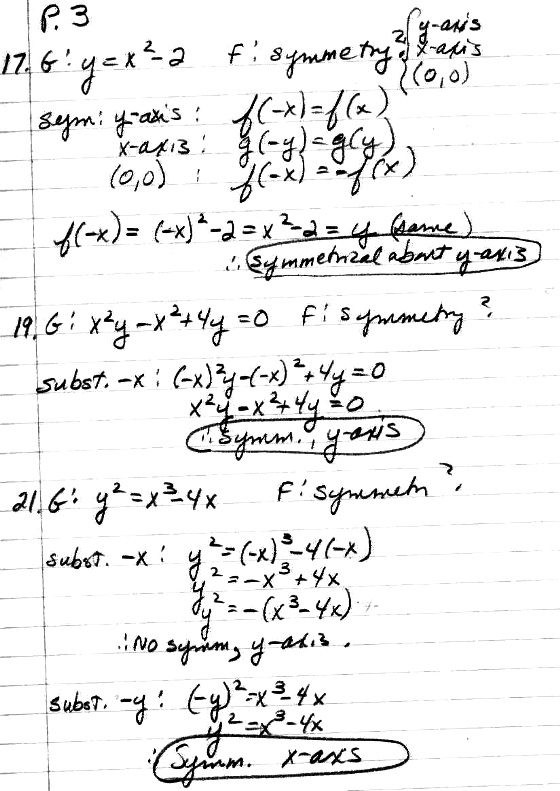 P. 3
17. G: y = x² - 2 F: symmetry? { y-axis
x-axis
(0,0)
sym: y-axis: f(-x) = f(x)
x-axis: g(-y) = g(y)
(0,0) : f(-x) = -f(x)
f(-x) = (-x)² - 2 = x² - 2 = y (same)
∴ symmetrical about y-axis
19. G: x²y - x² + 4y = 0 F: symmetry?
subst. -x: (-x)²y - (-x)² + 4y = 0
x²y - x² + 4y = 0
∴ Symm., y-axis
21. G: y² = x³ - 4x F: symmetr?
subst. -x: y² = (-x)³ - 4(-x)
y² = -x³ + 4x
y² = -(x³ - 4x)
∴ No symm, y-axis.
subst. -y: (-y)² = x³ - 4x
y² = x³ - 4x
∴ Symm. x-axs